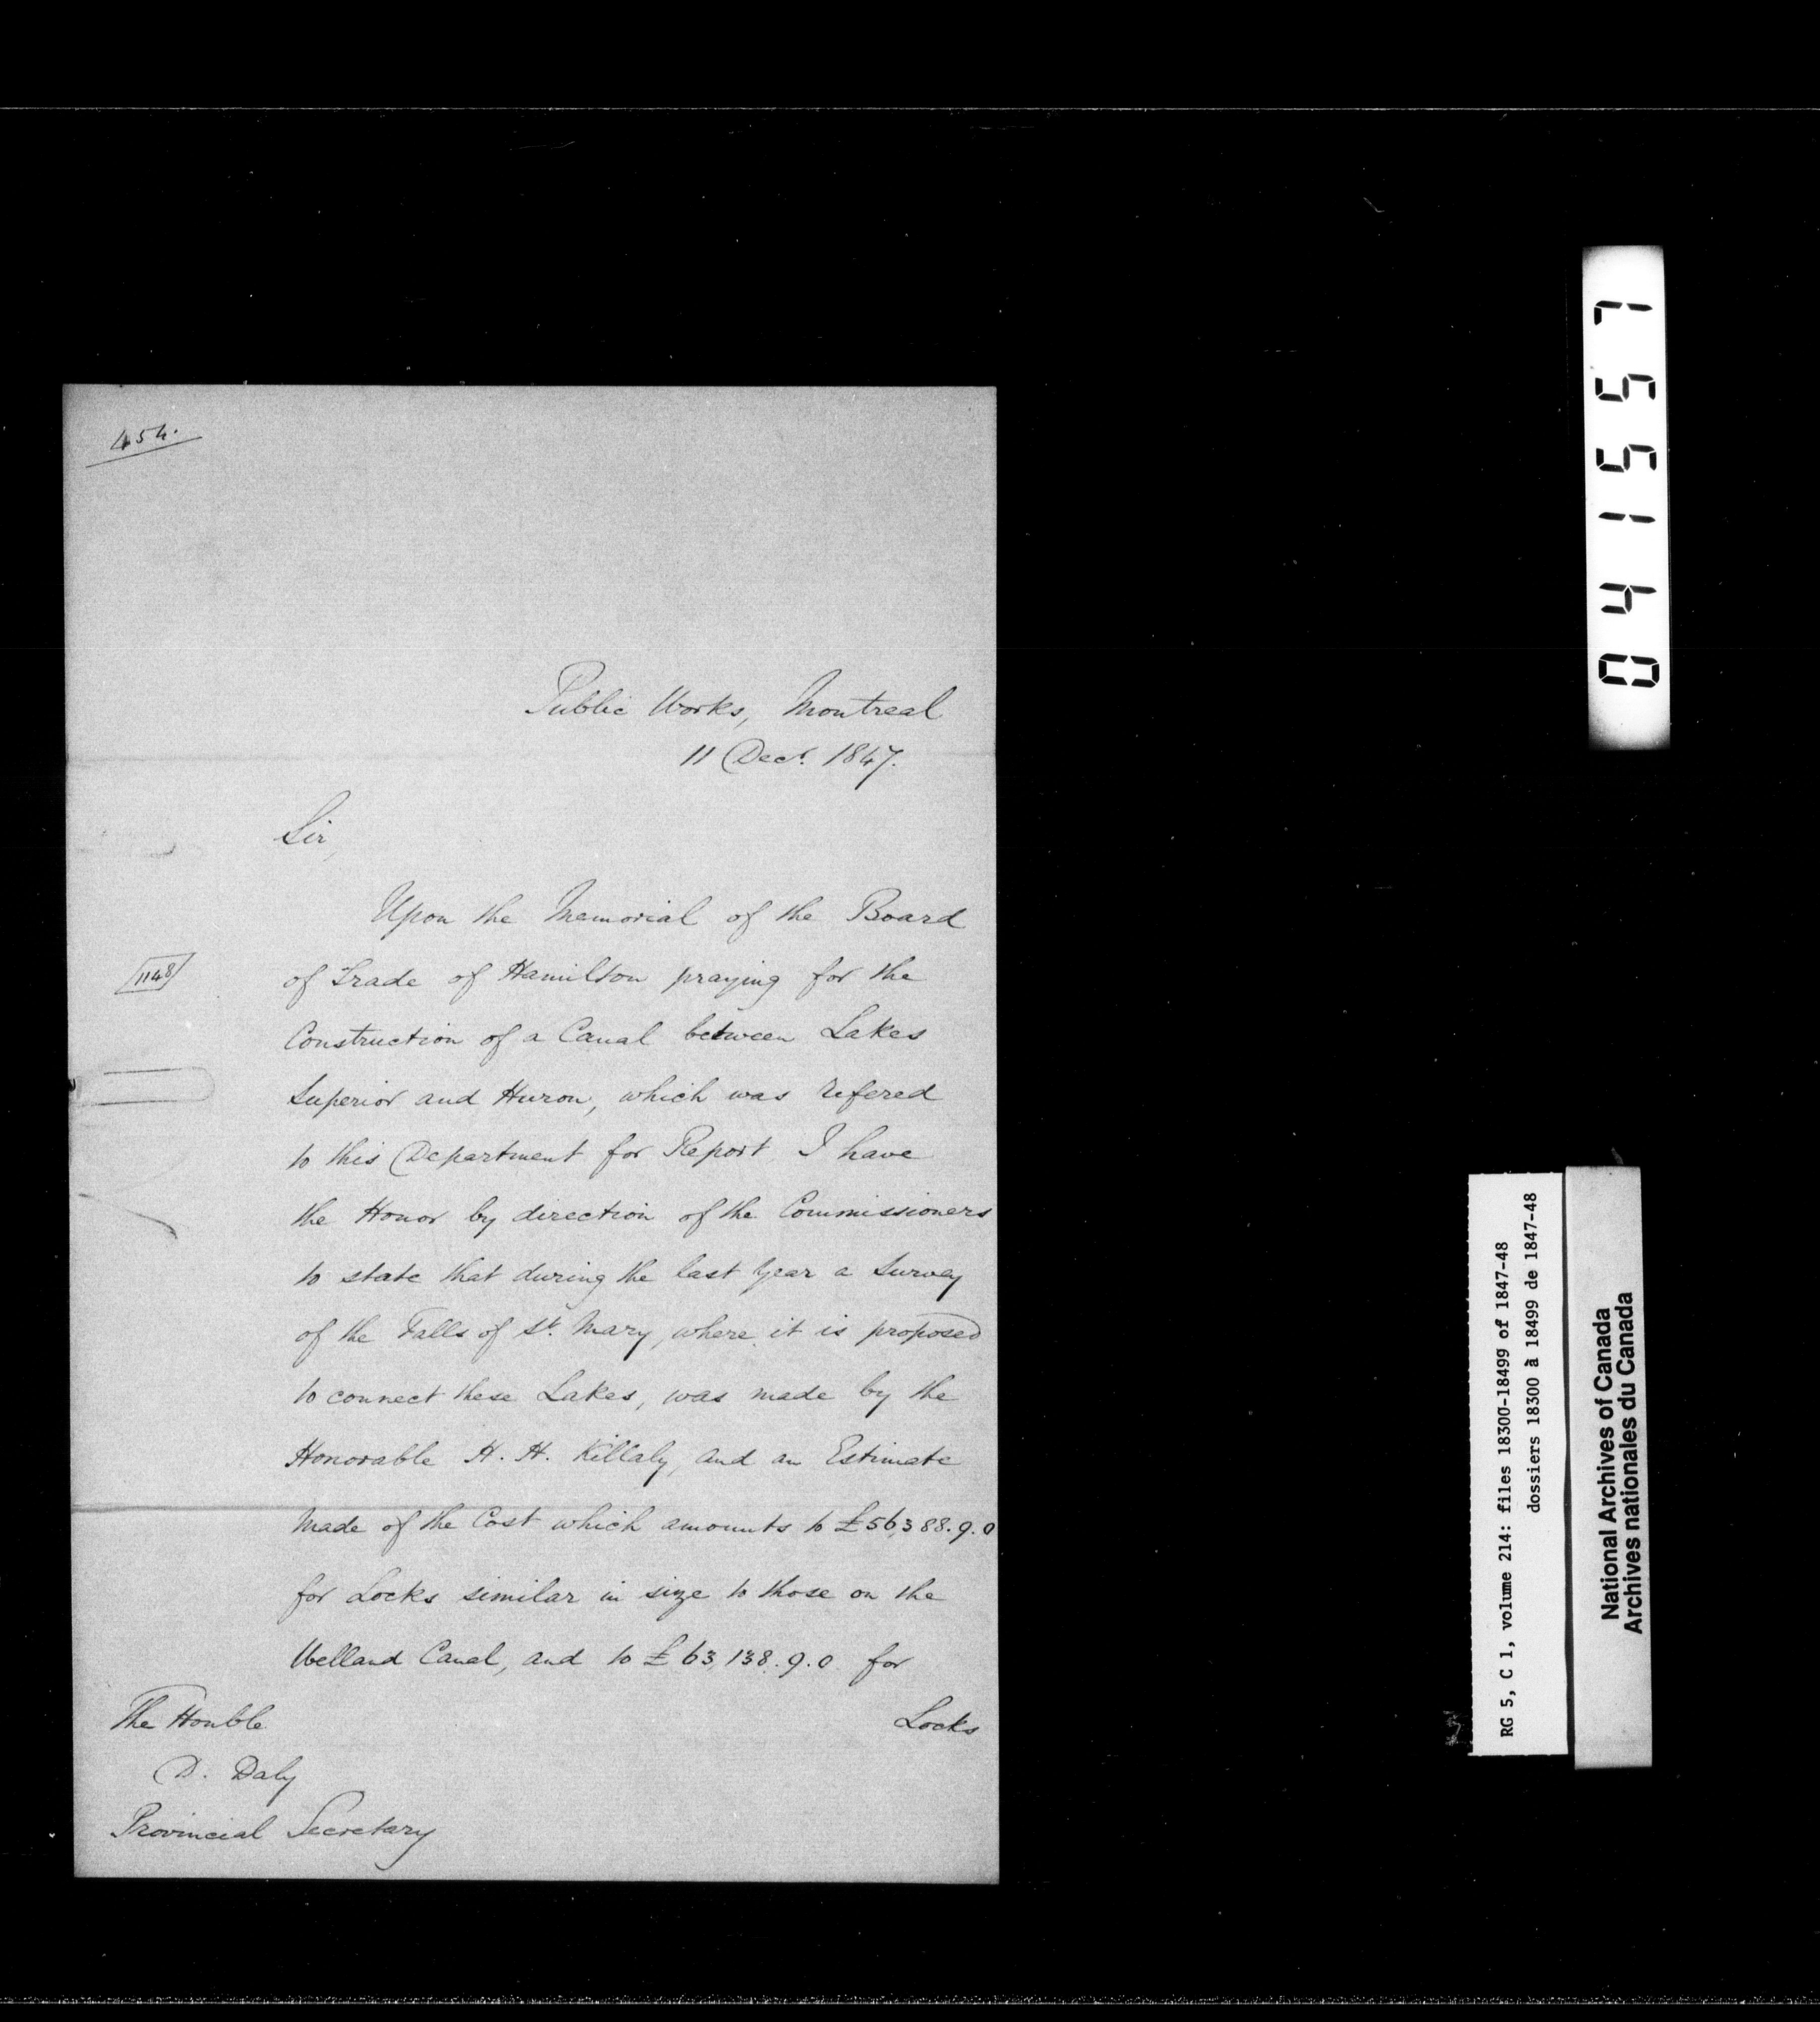 454.
Public Works, Montreal
11 Decr. 1847.
Sir,
Upon the Memorial of the Board
1148
of Trade of Hamilton praying for the
Construction of a Canal between Lakes
Superior and Huron, which was refered
to this Department for Report I have
the Honor by direction of the Commissioners
to state that during the last Year a Survey
of the Falls of St. Mary, where it is proposed
to connect these Lakes, was made by the
Honorable H. H. Killaly, and an Estimate
made of the Cost which amounts to £56,388.9.0
for Locks similar in size to those on the
Welland Canal, and to £63,138.9.0 for
Locks
The Honble
D. Daly
Provincial Secretary
041557
RG 5, C 1, volume 214: files 18300-18499 of 1847-48
dossiers 18300 à 18499 de 1847-48
National Archives of Canada
Archives nationales du Canada